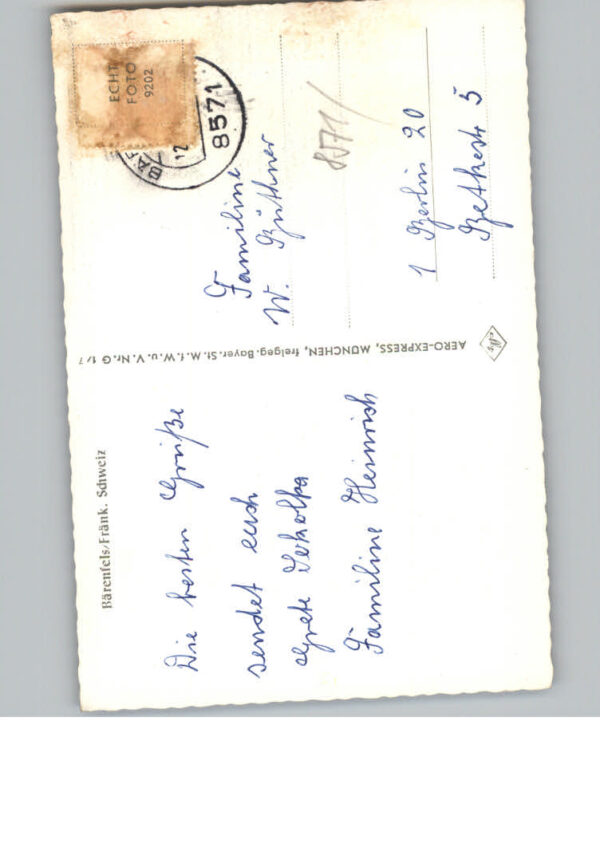 Bärenfels/Fränk. Schweiz
Die besten Grüße
sendet euch
Grete
Familine Heinrich
AERO-EXPRESS, MÜNCHEN, freigeg. Bayer. St. M. f. W. u. V. Nr. G 1/7
ECHT
FOTO
9202
12
8571
8571/
Familine
W. Güthner
1 Berlin 20
Betkestr 5